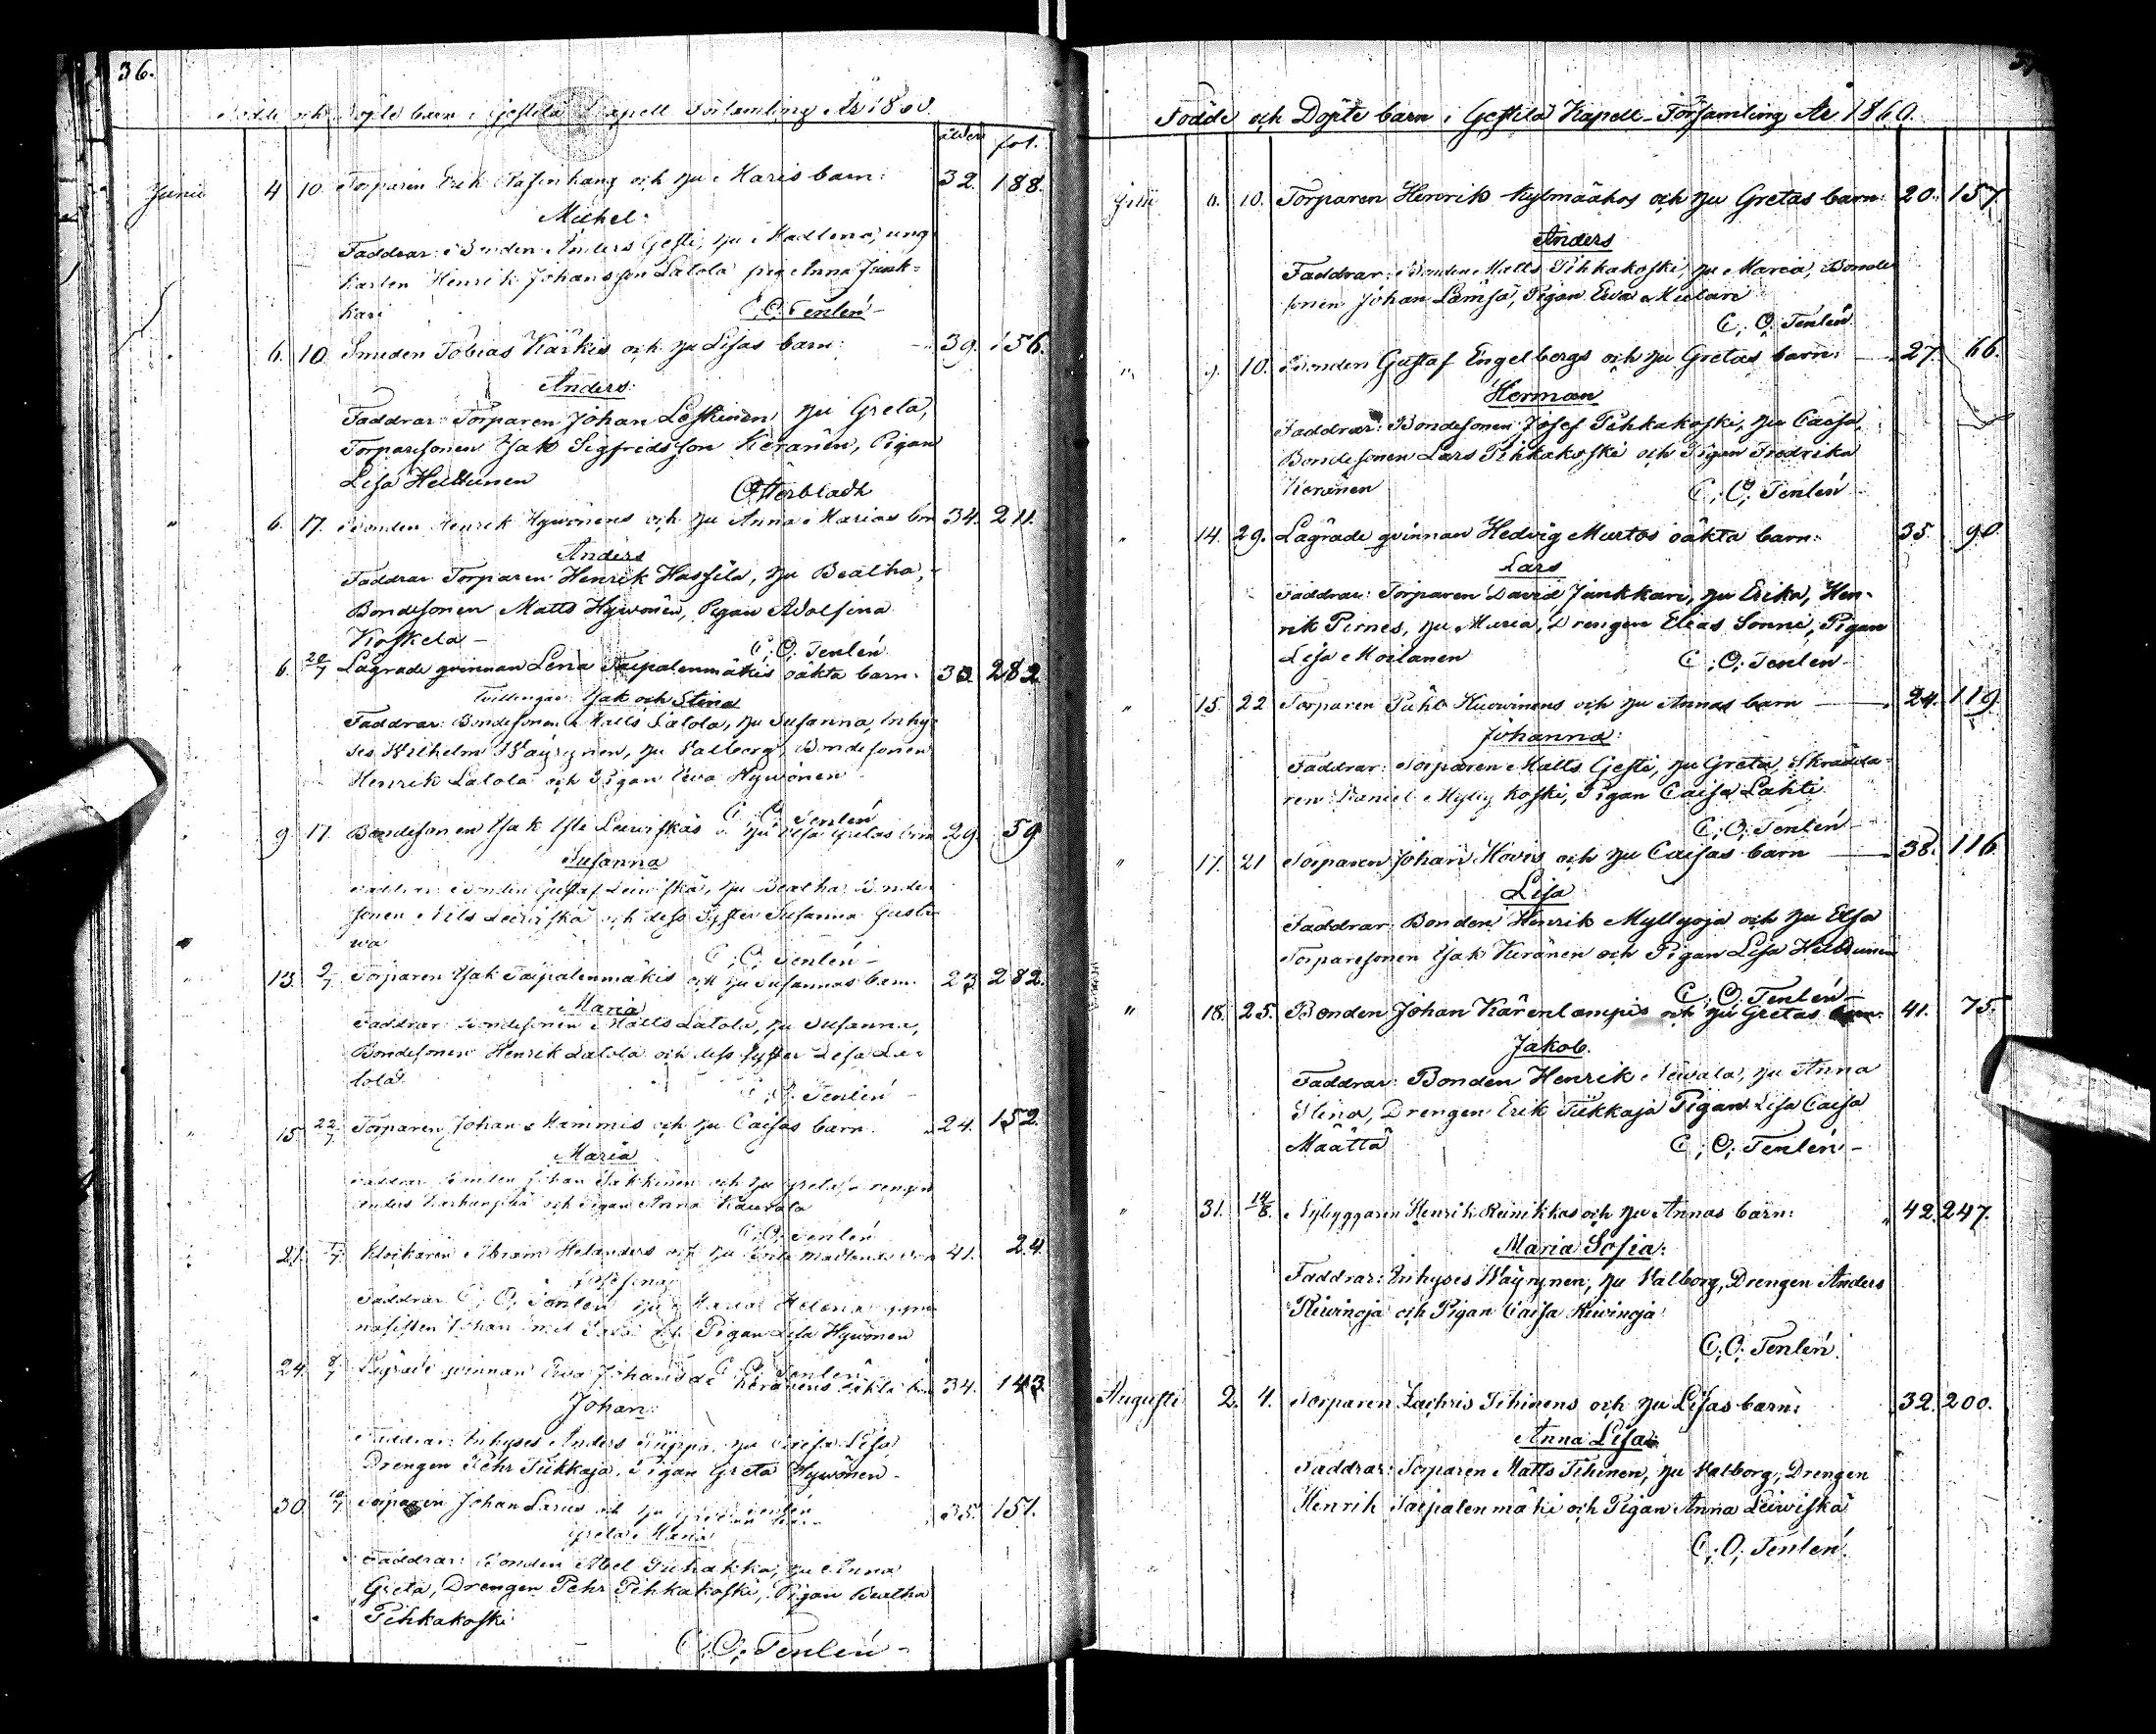 36.
Födde och Döpte barn i Gestilä Kapell Församling År 1860.
ålder fol.
Junii 4 10. Torparen Erik Tasenkang och hu Maris barn: 32. 188.
Michel:
Faddrar: Bonden Anders Gesti, hu Madlena, ung
karlen Henrik Johansson Latola pig Anna Junk-
kari C; O; Tenlén
6. 10. Smeden Tobias Karkis och hu Lisas barn: 39. 156.
Anders:
Faddrar: Torparen Johan Leskinen hu Greta,
Torparesonen Isak Sigfridsson Keränen, Pigan
Lisa Heikkinen Österbladh
" 6. 17. Bonden Henrik Hywönens och hu Anna Marias bar 34. 211.
Anders
Faddrar Torparen Henrik Hassila, hu Beatha,
Bondesonen Matts Hywönen, Pigan Adolfina
Koskela - C; O; Tenlén
" 6. 20/7 Lägrade qvinnan Lena Taipalenmäkis oäkta barn. 30. 282
Tvillingar: Isak och Stina
Faddrar: Bondesonen Matts Latola, hu Susanna, Inhy-
ses Wilhelm Wäyrynen, hu Valborg, Bondesonen
Henrik Latola och Pigan Ewa Hywönen
C; O; Tenlén
9. 17. Bondesonen Isak Leiwiskäs o. hu Elsa Gretas barn 29. 59
Susanna
Faddrar: Bonden Gustaf Leiwiskä, hu Beatha Bonde
sonen Nils Leiwiskä och dess Syster Susanna Gusta-
wa C; O; Tenlén -
13. 9/7 Torparen Isak Taipalenmäkis och hu Susannas barn. 23. 282.
Maria
Faddrar: Bondesonen Matts Latola, hu Susanna,
Bondesonen Henrik Latola och dess syster Lisa La-
tola C; O; Tenlén
15 22/7 Torparen Johan Mammis och hu Caisas barn. 24. 152.
Maria
Faddrar Bonden Johan Säkkinen och hu Greta, Drengen
Anders och Pigan Anna
C; O; Tenlén
21. /7 Klockaren Abram Helanders och hu Madlenas barn 41. 24.
Josefina
Faddrar C; O; Tenlén hu Maria Helena gym-
nasisten Johan Emil och Pigan Lisa Hywönen
C; O; Tenlén
24. 8/7 Lägrade qvinnan Ewa Johansdr Keränens oäkta barn 34. 143
Johan:
Faddrar: Inhyses Anders Kuppa hu Caisa Lisa
Drengen Pehr Tiikkaja, Pigan Greta Hywönen -
C; O; Tenlén
30 10/7 Torparen Johan Larus och hu Gretas barn 35. 151.
Greta Maria
Faddrar: Bonden Abel Tuhakka, hu Anna
Greta, Drengen Pehr Pihkakoski, Pigan Beatha
Pihkakoski
C; O; Tenlén -
Födde och Döpte barn i Gestilä Kapell-Församling År 1860.
Juli 6. 10. Torparen Henrik Kylmäähos och hu Gretas barn: 20. 157
Anders
Faddrar: Bonden Matts Pihkakoski, hu Maria, Bonde
sonen Johan Lämsä, Pigan Ewa Mulari
C; O; Tenlén
" 9. 10. Bonden Gustaf Engelbergs och hu Gretas barn: 27. 66.
Herman
Faddrar: Bondesonen Josef Pihkakoski, hu Caisa,
Bondesonen Lars Pihkakoski och Pigan Fredrika
Keränen C; O; Tenlén
" 14. 29. Lägrade qvinnan Hedvig Murtos oäkta barn: 35. 90
Lars
Faddrar: Torparen David Junkkari, hu Erika, Hen-
rik Pirnes, hu Maria, Drengen Elias Sonni, Pigan
Lisa Moilanen C; O; Tenlén
" 15. 22 Torparen Påhl Kurwinens och hu Annas barn 24. 119.
Johanna:
Faddrar: Torparen Matts Gesti, hu Greta, Skrädda-
ren Daniel Mylly koski, Pigan Caisa Lahti
C; O; Tenlén
" 17. 21 Torparen Johan Hovis och hu Caisas barn 38. 116
Lisa
Faddrar: Bonden Henrik Myllyoja och hu Elsa
Torparesonen Isak Keränen och Pigan Lisa Heikkinen
C; O; Tenlén -
" 18. 25. Bonden Johan Kärenlampis och hu Gretas barn. 41. 75.
Jakob.
Faddrar: Bonden Henrik Newala, hu Anna
Stina, Drengen Erik Tiikkaja Pigan Lisa Caisa
Määttä C; O; Tenlén -
" 31. 14/8. Nybyggaren Henrik Reinikkas och hu Annas barn: 42. 247.
Maria Sofia:
Faddrar: Inhyses Wäyrynen, hu Valborg, Drengen Anders
Kiwinoja och Pigan Caisa Kiwinoja
C; O; Tenlén.
Augusti 2. 4. Torparen Zachris Tihinens och hu Lisas barn: 32. 200.
Anna Lisa
Faddrar: Torparen Matts Tihinen, hu Valborg, Drengen
Henrik Taipalenmäki och Pigan Anna Leiwiskä
C; O; Tenlén.